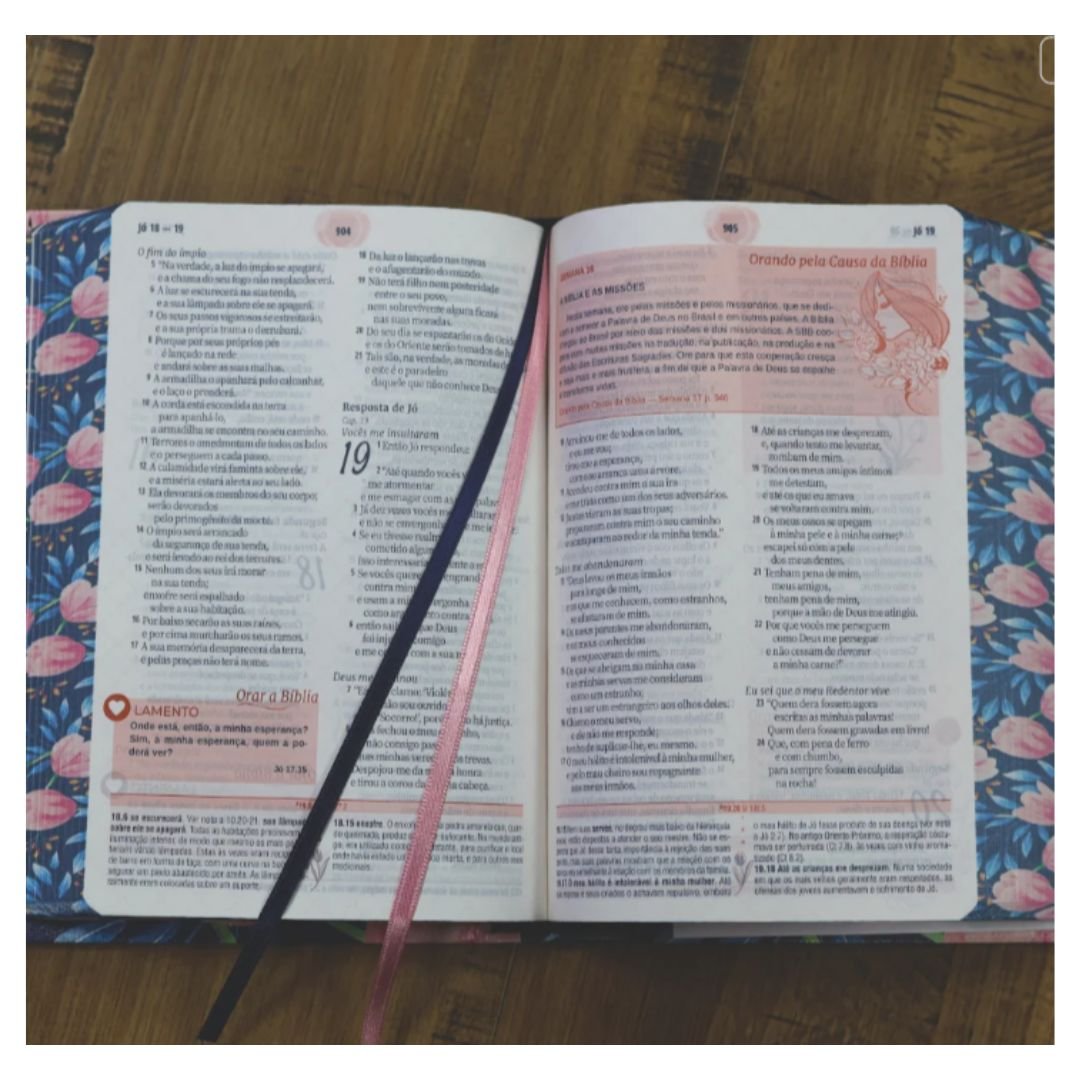 Jó 18 — 19
904
O fim do ímpio
5 "Na verdade, a luz do ímpio se apagará,
e a chama do seu fogo não resplandecerá.
6 A luz se escurecerá na sua tenda,
e a sua lâmpada sobre ele se apagará.
7 Os seus passos vigorosos se estreitarão,
e a sua própria trama o derrubará.
8 Porque por seus próprios pés
é lançado na rede
e andará sobre as suas malhas.
9 A armadilha o apanhará pelo calcanhar,
e o laço o prenderá.
10 A corda está escondida na terra
para apanhá-lo,
a armadilha se encontra no seu caminho.
11 Terrores o amedrontam de todos os lados
e o perseguem a cada passo.
12 A calamidade virá faminta sobre ele,
e a miséria estará alerta ao seu lado.
13 Ela devorará os membros do seu corpo;
serão devorados
pelo primogênito da morte.
14 O ímpio será arrancado
da segurança de sua tenda,
e será levado ao rei dos terrores.
15 Nenhum dos seus irá morar
na sua tenda;
enxofre será espalhado
sobre a sua habitação.
16 Por baixo secarão as suas raízes,
e por cima murcharão os seus ramos.
17 A sua memória desaparecerá da terra,
e pelas praças não terá nome.
Orar a Bíblia
LAMENTO
Onde está, então, a minha esperança?
Sim, a minha esperança, quem a po-
derá ver?
Jó 17.15
18 Da luz o lançarão nas trevas
e o afugentarão do mundo.
19 Não terá filho nem posteridade
entre o seu povo,
nem sobrevivente algum ficará
nas suas moradas.
20 Do seu dia se espantarão os do
e os do Oriente serão tomados de
21 Tais são, na verdade, as moradas
e este é o paradeiro
daquele que não conhece Deus
Resposta de Jó
Cap. 19
Vocês me insultaram
19
1 Então Jó respondeu:
2 "Até quando vocês
me atormentar
e me esmagar com as
3 Já dez vezes vocês me
e não se envergonham
4 Se eu tivesse realm
cometido algum
isso interessaria
5 Se vocês querem
contra mim
e usam a minha vergonha
como contra
6 então saibam que Deus
foi injusto comigo
e me com a sua
Deus me
7 "Eis clamo: 'Violên
não sou ouvido
'Socorro!', porém não há justiça.
fechou o meu
não consigo
minhas veredas trevas.
Despojou-me da minha honra
e tirou a coroa da minha cabeça.
18.6 se escurecerá. Ver nota a 10.20-21. sua lâmpada
sobre ele se apagará. Todas as habitações precisavam
iluminação interna, de modo que mesmo os mais
tenham várias lâmpadas. Estas às vezes eram
de barro em forma de taça, com uma curva na
segurar um pavio abastecido por azeite. As
ramente eram colocadas sobre um suporte.
18.15 enxofre. O pedra amarelada que,
de queimado, produz
905
Jó 19
SEMANA 38
Orando pela Causa da Bíblia
A BÍBLIA E AS MISSÕES
Nesta semana, ore pelas missões e pelos missionários, que se dedi-
cam a semear a Palavra de Deus no Brasil e em outros países. A Bíblia
chegou ao Brasil por meio das missões e dos missionários. A SBB coo-
pera com muitas missões na tradução, na publicação, na produção e na
difusão das Escrituras Sagradas. Ore para que esta cooperação cresça
e seja mais e mais frutífera, a fim de que a Palavra de Deus se espalhe
e transforme vidas.
Orando pela Causa da Bíblia — Semana 37 p. 946
Arruinou-me de todos os lados,
e eu me vou;
tirou-me a esperança,
como se arranca uma árvore.
Acendeu contra mim a sua ira
e me trata como um dos seus adversários.
Juntas vieram as suas tropas;
prepararam contra mim o seu caminho
e acamparam ao redor da minha tenda."
Todos me abandonaram
"Deus levou os meus irmãos
para longe de mim,
e os que me conhecem, como estranhos,
se afastaram de mim.
Os meus parentes me abandonaram,
e os meus conhecidos
se esqueceram de mim.
Os que se abrigam na minha casa
e as minhas servas me consideram
como um estranho;
sim, sou um estrangeiro aos olhos deles.
Chamo o meu servo,
e ele não me responde;
tenho de suplicar-lhe, eu mesmo.
O meu hálito é intolerável à minha mulher,
e pelo mau cheiro sou repugnante
aos meus irmãos.
18 Até as crianças me desprezam,
e, quando tento me levantar,
zombam de mim.
19 Todos os meus amigos íntimos
me detestam,
e até os que eu amava
se voltaram contra mim.
20 Os meus ossos se apegam
à minha pele e à minha carne;
escapei só com a pele
dos meus dentes.
21 Tenham pena de mim,
meus amigos,
tenham pena de mim,
porque a mão de Deus me atingiu.
22 Por que vocês me perseguem
como Deus me persegue
e não cessam de devorar
a minha carne?"
Eu sei que o meu Redentor vive
23 "Quem dera fossem agora
escritas as minhas palavras!
Quem dera fossem gravadas em livro!
24 Que, com pena de ferro
e com chumbo,
para sempre fossem esculpidas
na rocha!
o meu hálito é intolerável à minha mulher. Até
os seus e seus criados o achavam repulsivo, embora
o mau hálito de Jó fosse produto de sua doença (ver nota
a Jó 2.7). No antigo Oriente Próximo, a respiração costu-
mava ser perfumada (Ct 7.8), às vezes com vinho aroma-
tizado (Ct 8.2).
19.18 Até as crianças me desprezam. Numa sociedade
em que os mais velhos geralmente eram respeitados, as
ofensas dos jovens aumentavam o sofrimento de Jó.